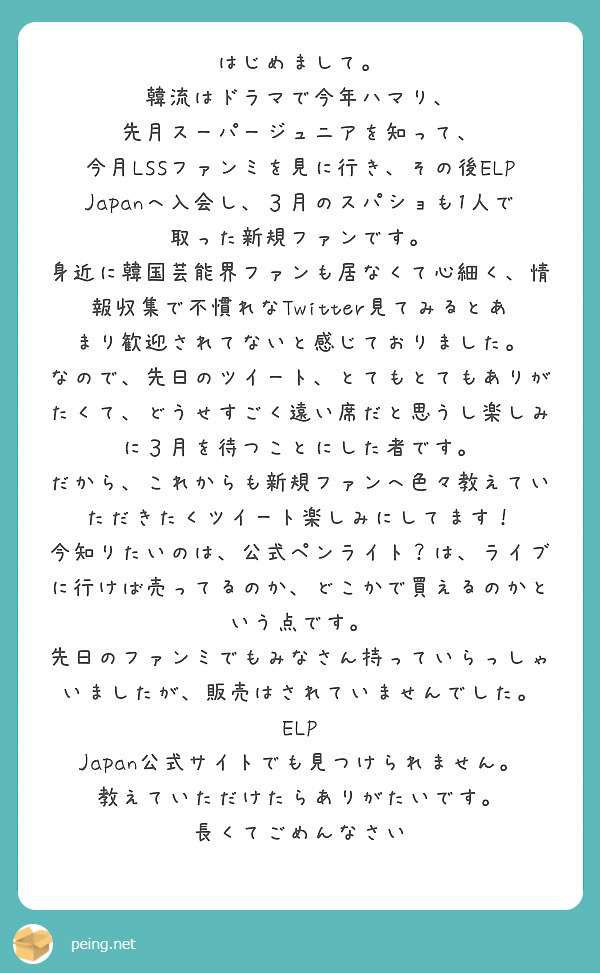 はじめまして。
韓流はドラマで今年ハマり、
先月スーパージュニアを知って、
今月LSSファンミを見に行き、その後ELP
Japanへ入会し、３月のスパショも1人で
取った新規ファンです。
身近に韓国芸能界ファンも居なくて心細く、情
報収集で不慣れなTwitter見てみるとあ
まり歓迎されてないと感じておりました。
なので、先日のツイート、とてもとてもありが
たくて、どうせすごく遠い席だと思うし楽しみ
に３月を待つことにした者です。
だから、これからも新規ファンへ色々教えてい
ただきたくツイート楽しみにしてます！
今知りたいのは、公式ペンライト？は、ライブ
に行けば売ってるのか、どこかで買えるのかと
いう点です。
先日のファンミでもみなさん持っていらっしゃ
いましたが、販売はされていませんでした。
ELP
Japan公式サイトでも見つけられません。
教えていただけたらありがたいです。
長くてごめんなさい
peing.net